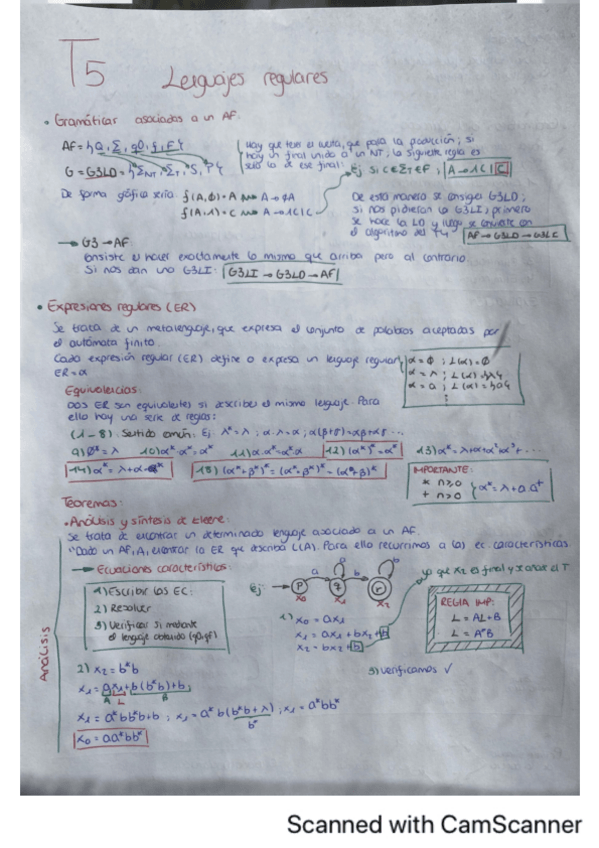 T5 Lenguajes regulares
• Gramáticas asociadas a un AF.
AF = {Q, Σ, q0, f, F}
G = G3LD = {ΣNT, ΣT, S, P}
Hay que tener en cuenta, que para la producción; si
hay un final unido a un NT, la siguiente regla es
sólo la de ese final:
Ej si C ∈ ΣT ∈ F; A → 1C | C
De forma gráfica sería: f(A,0) = A → A → 0A
f(A,1) = C → A → 1C | C
De esta manera se consigue G3LD;
si nos pidieran la G3LI, primero
se hace la LD y luego se convierte con
el algoritmo del T4
AF → G3LD → G3LI
→ G3 → AF
Consiste en hacer exactamente lo mismo que arriba pero al contrario.
Si nos dan una G3LI: G3LI → G3LD → AF
• Expresiones regulares (ER)
Se trata de un metalenguaje, que expresa el conjunto de palabras aceptadas por
el autómata finito.
Cada expresión regular (ER) define o expresa un lenguaje regular
ER = α
α = Ø ; L(α) = Ø
α = λ ; L(α) = {λ}
α = a ; L(α) = {a}
⋮
Equivalencias:
Dos ER son equivalentes si describen el mismo lenguaje. Para
ello hay una serie de reglas:
(1-8). Sentido común. Ej: λ* = λ ; α.λ = α ; α(β+δ) = αβ + αδ ...
9) Ø* = λ 10) α*.α* = α* 11) α.α* = α*.α 12) (α*)* = α* 13) α* = λ + α + α² + α³ + ...
14) α* = λ + α.α* 15) (α* + β*)* = (α*.β*)* = (α + β)*
IMPORTANTE:
* n ≥ 0
+ n > 0
α* = λ + α.α+
Teoremas:
• Análisis y síntesis de Kleene:
Se trata de encontrar un determinado lenguaje asociado a un AF.
"Dado un AF, A, encontrar la ER que describa L(A). Para ello recurrimos a las ec. características.
→ Ecuaciones características:
1) Escribir las EC:
2) Resolver
3) Verificar si mediante
el lenguaje obtenido (q0, qf)
Ej:
p a q b r
a b
x0 x1 x2
ya que x2 es final y x1 usa el T
1) x0 = ax1
x1 = ax1 + bx2 + b
x2 = bx2 + b
REGLA IMP:
L = AL + B
L = A*B
Análisis
2) x2 = b*b
x1 = ax1 + b(b*b) + b;
A L B
x1 = a*bb*b + b ; x1 = a*b(b*b + λ) ; x1 = a*bb*
b*
x0 = aa*bb*
3) Verificamos ✓
Scanned with CamScanner